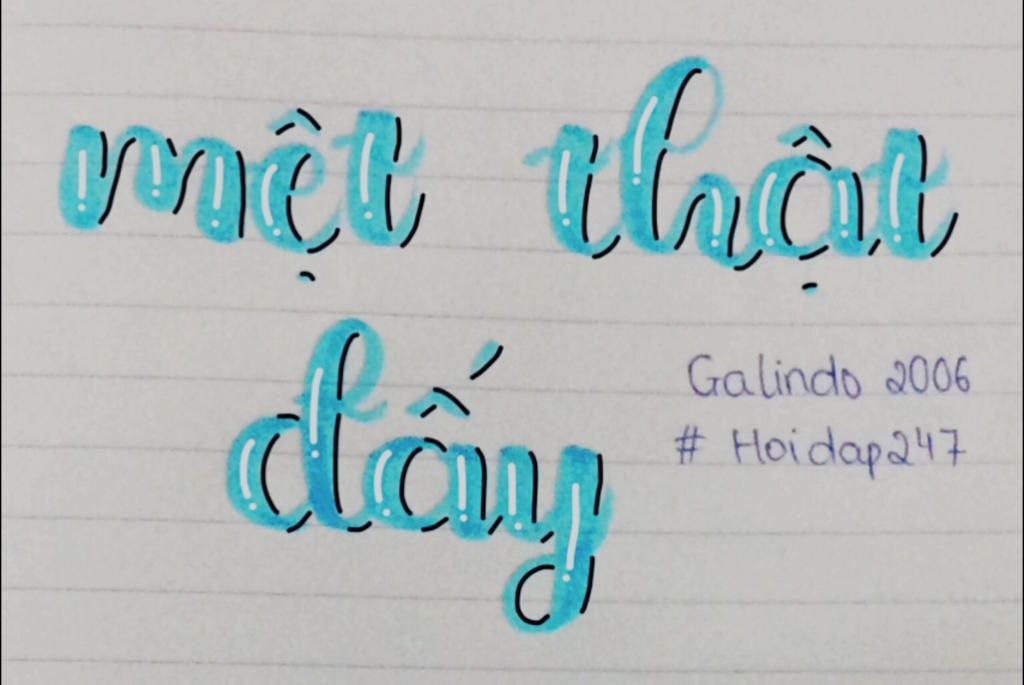 mệt thật
đấy
Galindo 2006
# Hoidap247